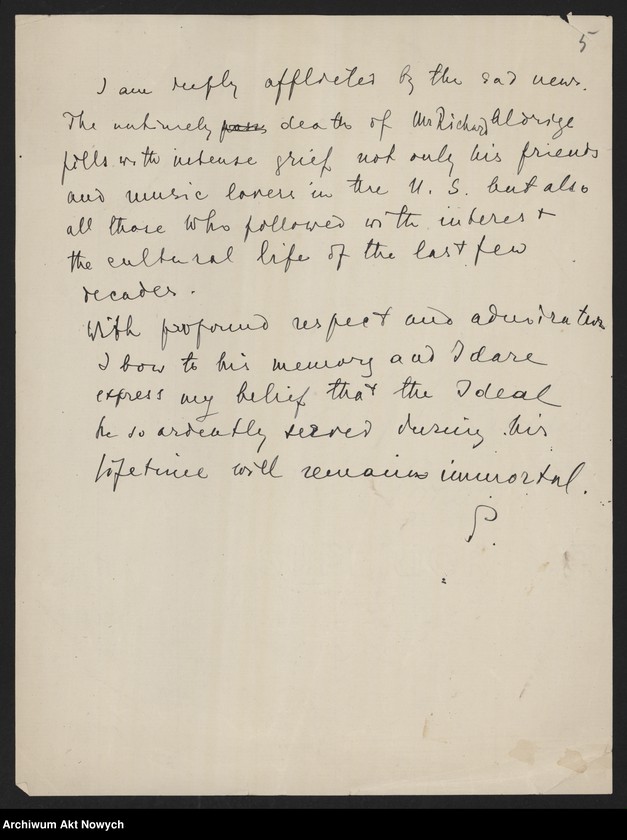 5
I am deeply afflicted by the sad news.
The untimely pass death of Mr Richard Aldrige
fills with intense grief not only his friends
and music lovers in the U. S. but also
all those who followed with interest
the cultural life of the last few
decades.
With profound respect and admiration
I bow to his memory and I dare
express my belief that the Ideal
he so ardently served during his
lifetime will remain immortal.
P.
Archiwum Akt Nowych